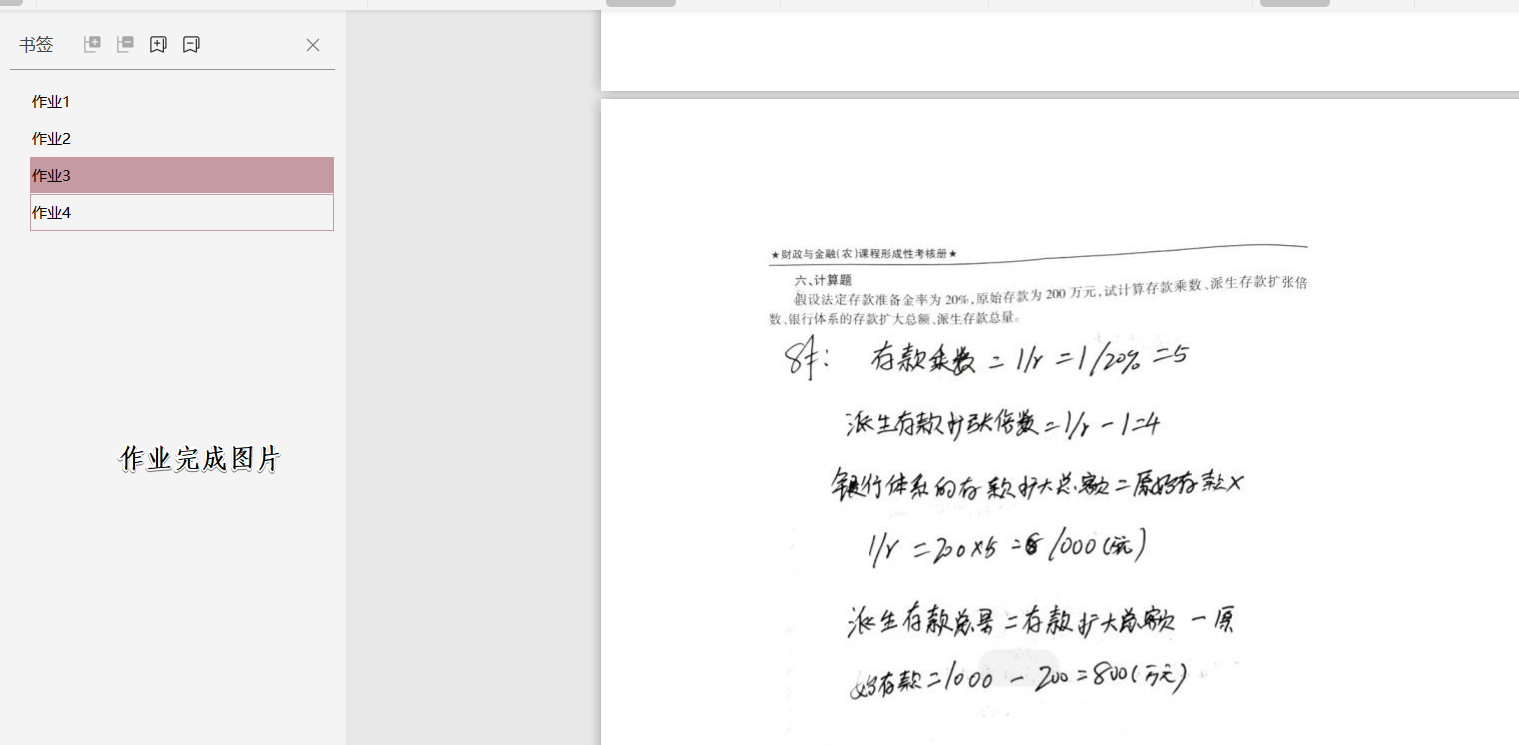 书签
作业1
作业2
作业3
作业4
作业完成图片
★财政与金融(农)课程形成性考核册★
六、计算题
假设法定存款准备金率为 20%,原始存款为 200 万元,试计算存款乘数、派生存款扩张倍
数、银行体系的存款扩大总额、派生存款总量。
解： 存款乘数 = 1/r = 1/20% = 5
派生存款扩张倍数 = 1/r - 1 = 4
银行体系的存款扩大总额 = 原始存款 ×
1/r = 200×5 = 1000(万元)
派生存款总量 = 存款扩大总额 - 原
始存款 = 1000 - 200 = 800(万元)